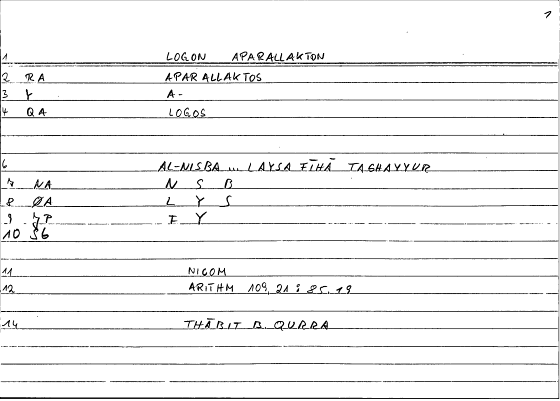 1
1 LOGON APARALLAKTON
2 RA APARALLAKTOS
3 Y A-
4 QA LOGOS
6 AL-NISBA ... LAYSA FĪHĀ TAGHAYYUR
7 NA N S B
8 ØA L Y S
9 F Y
10
11 NICOM
12 ARITHM 109,21 : 85,19
14 THĀBIT B. QURRA